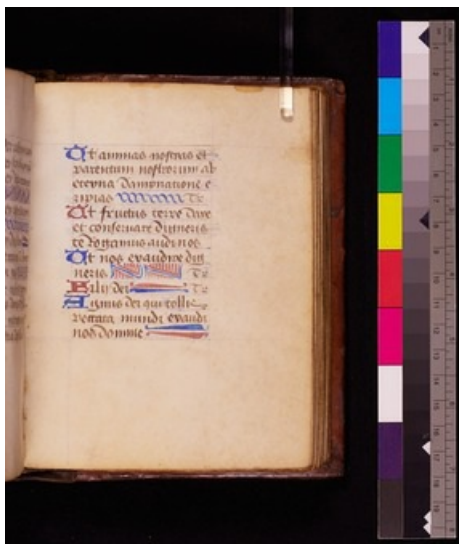 Ut animas nostras et
parentum nostrorum ab
eterna dampnatione e
ripias Te
Ut fructus terre dare
et conservare digneris
te rogamus audi nos
Ut nos exaudire dig
neris Te
Fily dei Te
Agnus dei qui tollis
peccata mundi exaudi
nos domine